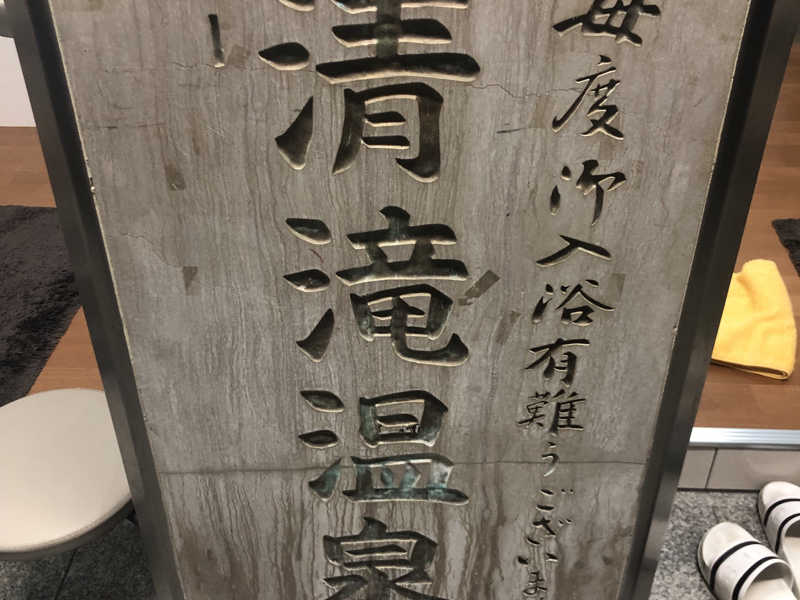 毎度御入浴有難うございま
清滝温泉